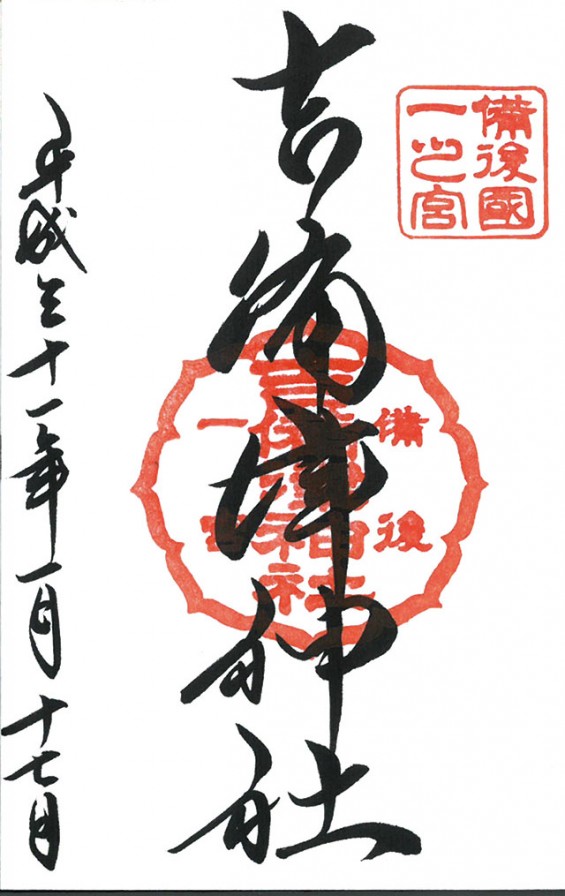 備後國
一之宮
吉備津神社
備後
一宮
平成三十一年一月十七日